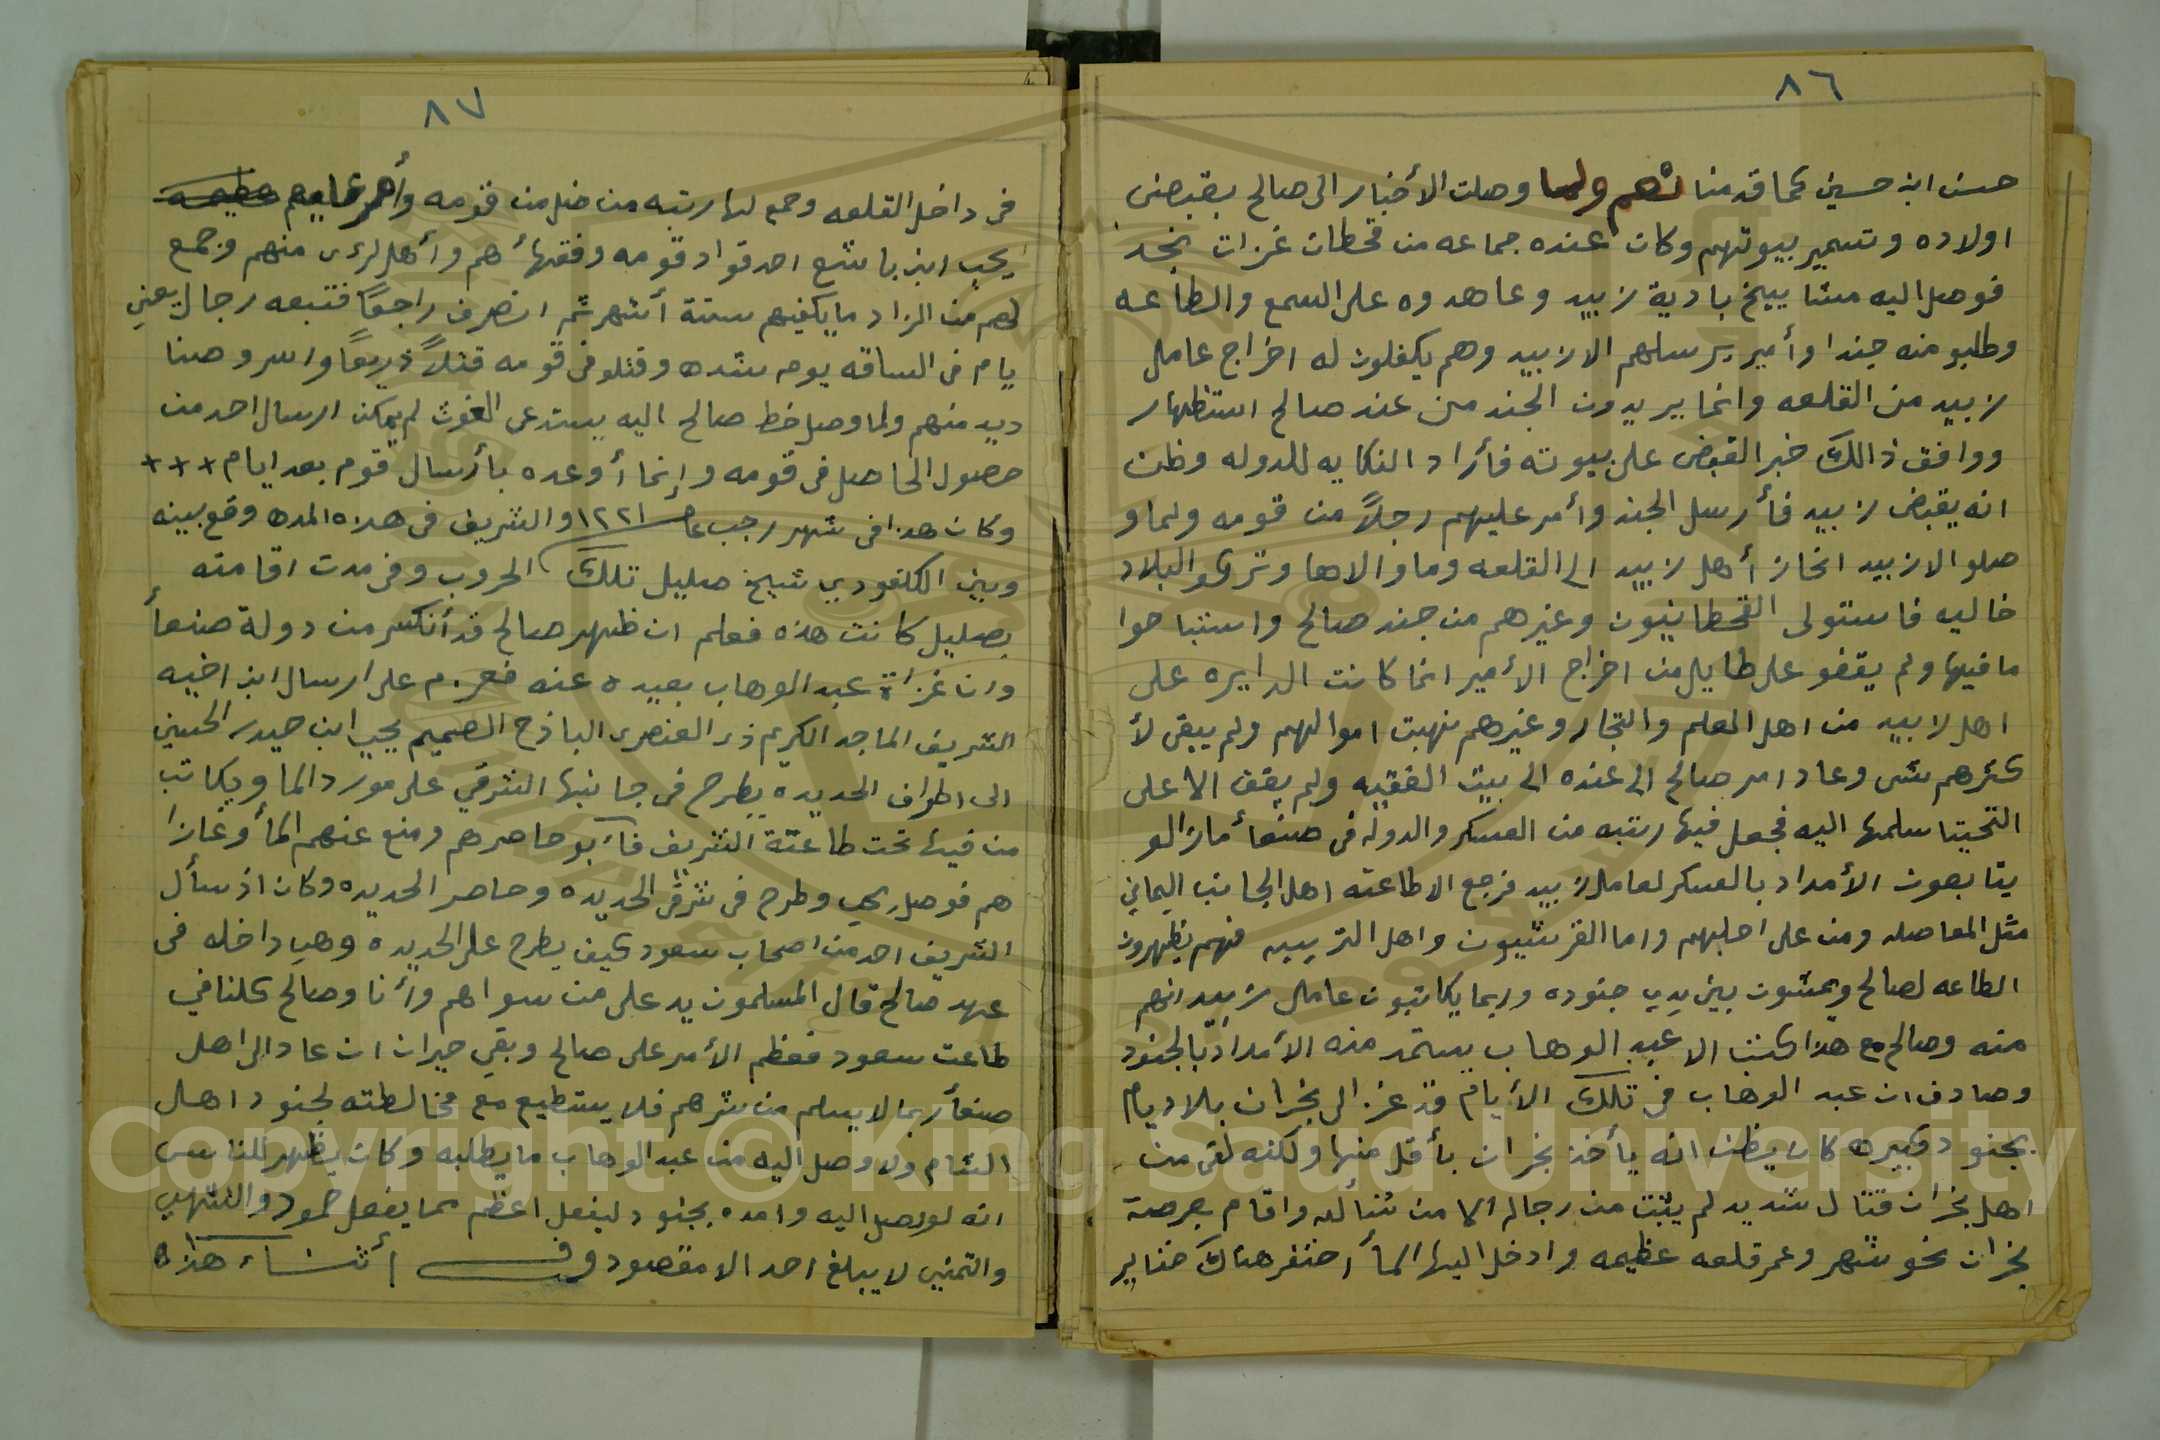 ٨٦
حسن ابن حسين كما قدمنا ثم ولما وصلت الأخبار الى صالح بقبض
اولاده وتسمير بيوتهم وكان عنده جماعه من قحطان غزات نجد
فوصل اليه مشاييخ بادية زبيد وعاهدوه على السمع والطاعه
وطلبو منه جندا وأمير يرسلهم الا زبيد وهم يكفلون له اخراج عامل
زبيد من القلعه وانما يريدون الجند من عند صالح استظهار
ووافق ذالك خبر القبض على بيوته فأراد النكايه للدوله وظن
انه يقبض زبيد فأرسل الجند وأمر عليهم رجلاً من قومه ولما و
صلو الا زبيد انحاز أهل زبيد الى القلعه وما والاها وتركو البلاد
خاليه فاستولى القحطانيون وغيرهم من جند صالح واستباحوا
مافيها ولم يقفو على طايل من اخراج الأمير انما كانت الدايره على
اهل زبيد من اهل العلم والتجار وغيرهم نهبت اموالهم ولم يبقى لأ
كثرهم شى وعاد امر صالح الى عنده الى بيت الفقيه ولم يقف الا على
التحيتا سلمها اليه فجعل فيها رتبه من العسكر والدوله في صنعأ مازالو
يتابعون الأمداد بالعسكر لعامل زبيد فرجع الا طاعته اهل الجانب اليماني
مثل المعاصله ومن على اصلبهم واما القرشييون واهل التريبه فهم يظهرون
الطاعه لصالح ويمشون بين يدي جنوده وربما يكاتبون عامل زبيد انهم
منه وصالح مع هذا كتب الا عبد الوهاب يستمد منه الأمداد بالجنود
وصادف ان عبد الوهاب في تلك الأيام قد غزا الى نجران بلاد يام
بجنود كبيره كان يظن انه يأخذ نجران بأقل منها ولكنه لقى من
اهل نجران قتال شديد لم يثبت من رجاله الا من شأ الله واقام بعرصة
نجران نحو شهر وعمر قلعه عظيمه وادخل اليها المأ احتفر هناك حفاير
٨٧
في داخل القلعه وجمع لها رتبه من خيل من قومه وأمر عليهم
يحيى ابن باشع احد قواد قومه وفقهائهم وأهل لرءى منهم وجمع
لهم من الزاد ما يكفيهم ستة أشهر ثم انصرف راجعاً فتبعه رجال يعني
يام في الساقه يوم شده وقتلو في قومه قتلاً ذريعاً واسر وصنا
ديد منهم ولما وصل خط صالح اليه يستدعى الغوث لم يمكن ارسال احد من
حصول الحاصل في قومه وإنما أوعده بأرسال قوم بعد ايام +++
وكان هذا في شهر رجب عام ١٢٢١ والشريف في هذه المده وقع بينه
وبين الكلفودي شيخ صليل تلك الحروب وفي مدت اقامته
بصليل كانت هذه فعلم ان ظهر صالح قد أنكسر من دولة صنعأ
وان غزاة عبد الوهاب بعيده عنه فعزم على ارسال ابن اخيه
الشريف الماجد الكريم ذي العنصر الباذخ الصميم يحيى ابن حيدر الحسيني
الى اطراف الحديده يطرح في جانبها الشرقي على مورد الما ويكاتب
من فيها تحت طاعتة الشريف فأبو حاصرهم ومنع عنهم المأ وغازا
هم فوصل يحيى وطرح في شرقى الحديده وحاصر الحديده وكان اذ سأل
الشريف احد من اصحاب سعود كيف يطرح على الحديده وهي داخله في
عهد صالح قال المسلمون يد على من سواهم وأنا وصالح كلنا في
طاعت سعود فعظم الأمر على صالح وبقي حيران ان عاد الى اهل
صنعأ ربما لا يسلم من شرهم فلا يستطيع مع مخالطته لجنود اهل
الشام ولا وصل اليه من عبد الوهاب ما يطلبه وكان يظهر للناس
انه لو وصل اليه وامده بجنود ليفعل اعظم مما يفعل حمود والتشهي
والتمني لا يبلغ احد الا مقصود وفي أثناء هذه
Copyright © King Saud University